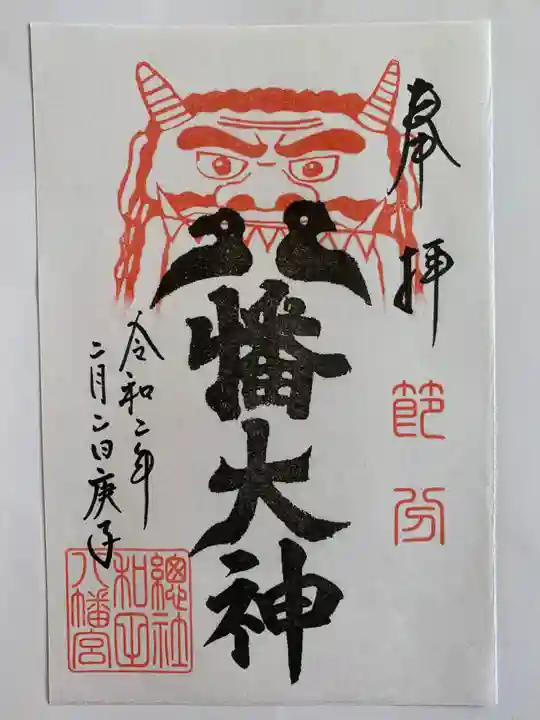 奉拝
節分
八幡大神
令和二年
二月二日庚子
總社
和田
八幡宮